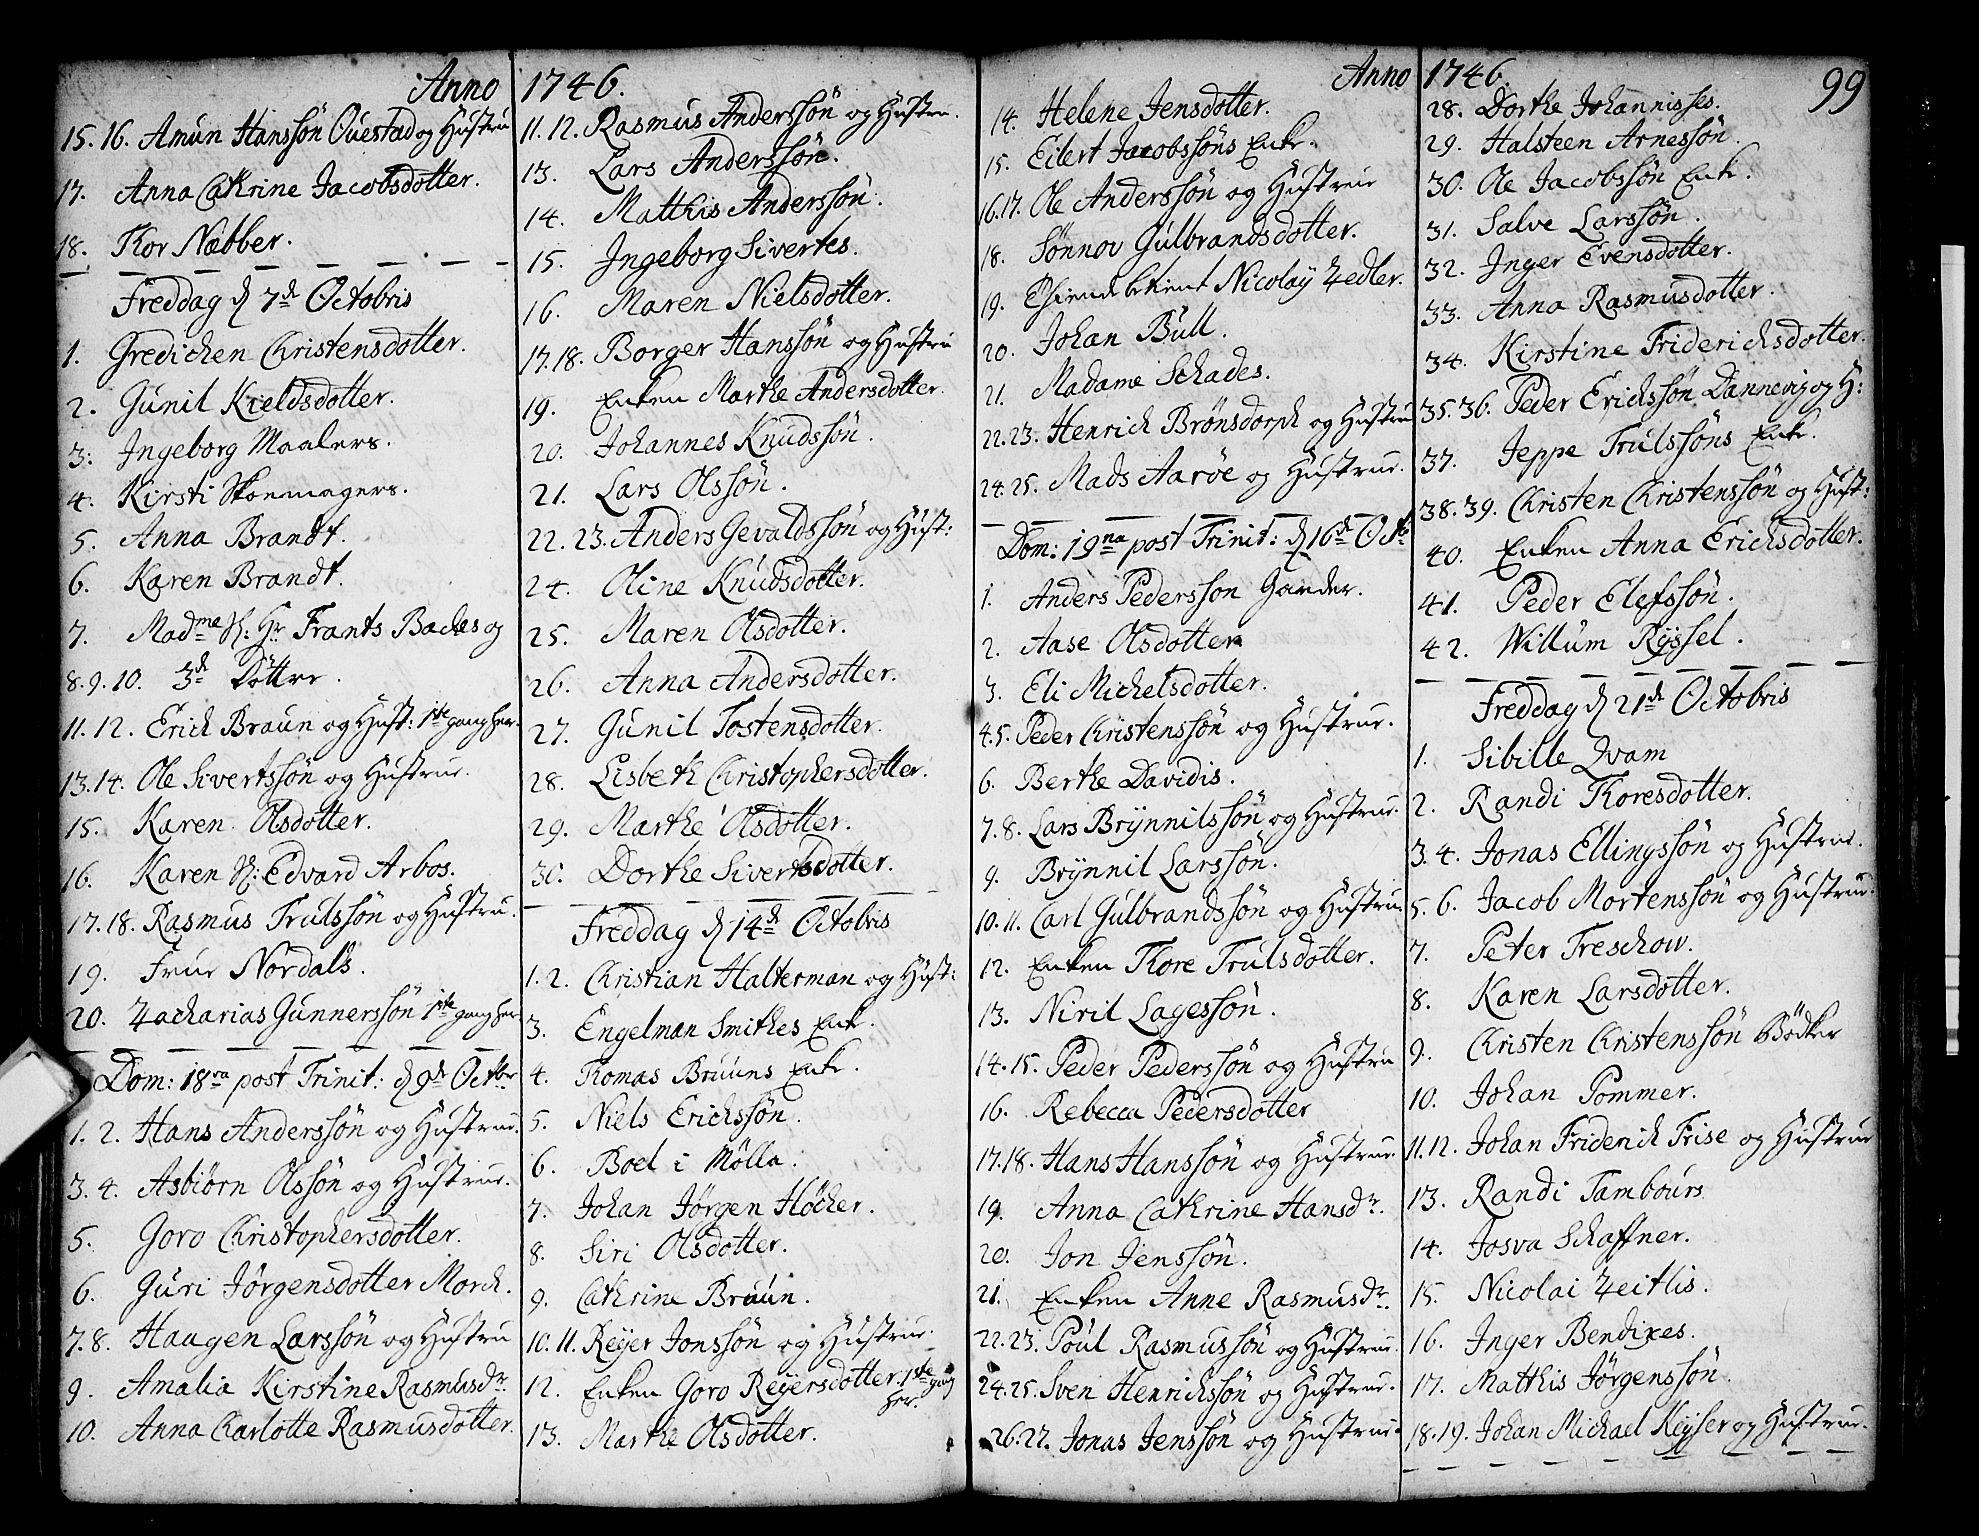 Anno 1746.
15. 16. Amun Hanssön Ouestad og Hustru
17. Anna Cathrine Jacobsdotter.
18. Thor Næbber.
Freddag d 7de Octobris
1. Gredichen Christensdotter.
2. Gunil Kieldsdotter.
3. Ingeborg Maalers.
4. Kirsti Skoemagers.
5. Anna Brandt.
6. Karen Brandt.
7. Madme Sl: Hr Frants Backes og
8. 9. 10. 3de Döttre.
11. 12. Erick Braun og Hust: 1ste gang her.
13. 14. Ole Sivertssön og Hustrue.
15. Karen Olsdotter.
16. Karen Sl: Edvard Arbos.
17. 18. Rasmus Trulssön og Hustru.
19. Frue Nordals.
20. Zacharias Gunnerssön 1ste gang her
Dom: 18va post Trinit: d 9de Octbr
1. 2. Hans Anderssön og Hustrue.
3. 4. Asbiörn Olssön og Hustrue.
5. Goro Christophersdotter.
6. Guri Jörgensdotter Morch.
7. 8. Haagen Larssön og Hustru
9. Amalia Kirstine Rasmusdr.
10. Anna Charlotte Rasmusdotter.
11. 12. Rasmus Anderssön og Hustru.
13. Lars Anderssön.
14. Matthis Anderssön.
15. Ingeborg Sivertes.
16. Maren Nielsdotter.
17. 18. Borger Hanssön og Hustru
19. Enken Marthe Andersdotter.
20. Johannes Knudssön.
21. Lars Olssön.
22. 23. Anders Gevaldssön og Hust:
24. Oline Knudsdotter.
25. Maren Olsdotter.
26. Anna Andersdotter.
27. Gunil Tostensdotter.
28. Lisbeth Christophersdotter.
29. Marthe Olsdotter.
30. Dorthe Sivertsdotter.
Freddag d 14de Octobris
1. 2. Christian Halterman og Hust:
3. Engelman Smithes Enk.
4. Thomas Bruuns Enk.
5. Niels Erichssön.
6. Boel i Mölla.
7. Johan Jörgen Höcher.
8. Siri Olsdotter.
9. Cathrine Bruun.
10. 11. Reyer Jonssön og Hustrue.
12. Enken Goro Reyersdotter. 1ste gang
her.
13. Marthe Olsdotter.
Anno 1746. 99
14. Helene Jensdotter.
15. Eilert Jacobssöns Enk.
16. 17. Ole Anderssön og Hustrue
18. Sönnov Gulbrandsdotter.
19. Nicolay Zedler.
20. Johan Bull.
21. Madame Schades.
22. 23. Henrich Brönsdorph og Hustru
24. 25. Mads Aaröe og Hustrue.
Dom: 19na post Trinit: d 16de Octb
1. Anders Pedersson Garder.
2. Aase Olsdotter
3. Eli Michelsdotter.
4. 5. Peder Christenssön og Hustrue.
6. Berthe Davidis.
7. 8. Lars Brynnilssön og Hustrue.
9. Brynnil Larssön.
10. 11. Carl Gulbrandssön og Hustru.
12. Enken Thore Trulsdotter.
13. Niril Lagessön.
14. 15. Peder Pederssön og Hustru
16. Rebecca Pedersdotter
17. 18. Hans Hanssön og Hustrue.
19. Anna Cathrine Hansdr.
20. Jon Jenssön.
21. Enken Anne Rasmusdr.
22. 23. Poul Rasmussön og Hustrue.
24. 25. Sven Henrichssön og Hustrue.
26. 27. Jonas Jenssön og Hustrue.
28. Dorthe Johannisses.
29. Halsteen Arnessön.
30. Ole Jacobssön Enk.
31. Salve Larssön.
32. Inger Evensdotter.
33. Anna Rasmusdotter.
34. Kirstine Friderichsdotter.
35. 36. Peder Erichssön Dannevig og H:
37. Jeppe Trulssöns Enk.
38. 39. Christen Christenssön og Hust:
40. Enken Anna Erichsdotter.
41. Peder Elefssön.
42. Willum Ryssel.
Freddag d 21de Octobris
1. Sibille Qvam
2. Randi Thoresdotter.
3. 4. Jonas Ellingssön og Hustrue.
5. 6. Jacob Mortenssön og Hustrue.
7. Peter Treschow.
8. Karen Larsdotter.
9. Christen Christenssön Bödker
10. Johan Pommer.
11. 12. Johan Friderich Frise og Hustrue
13. Randi Tambours
14. Josva Schaffner.
15. Nicolai Zeitlis.
16. Inger Bendixes.
17. Matthis Jörgenssön.
18. 19. Johan Michael Keyser og Hustrue.